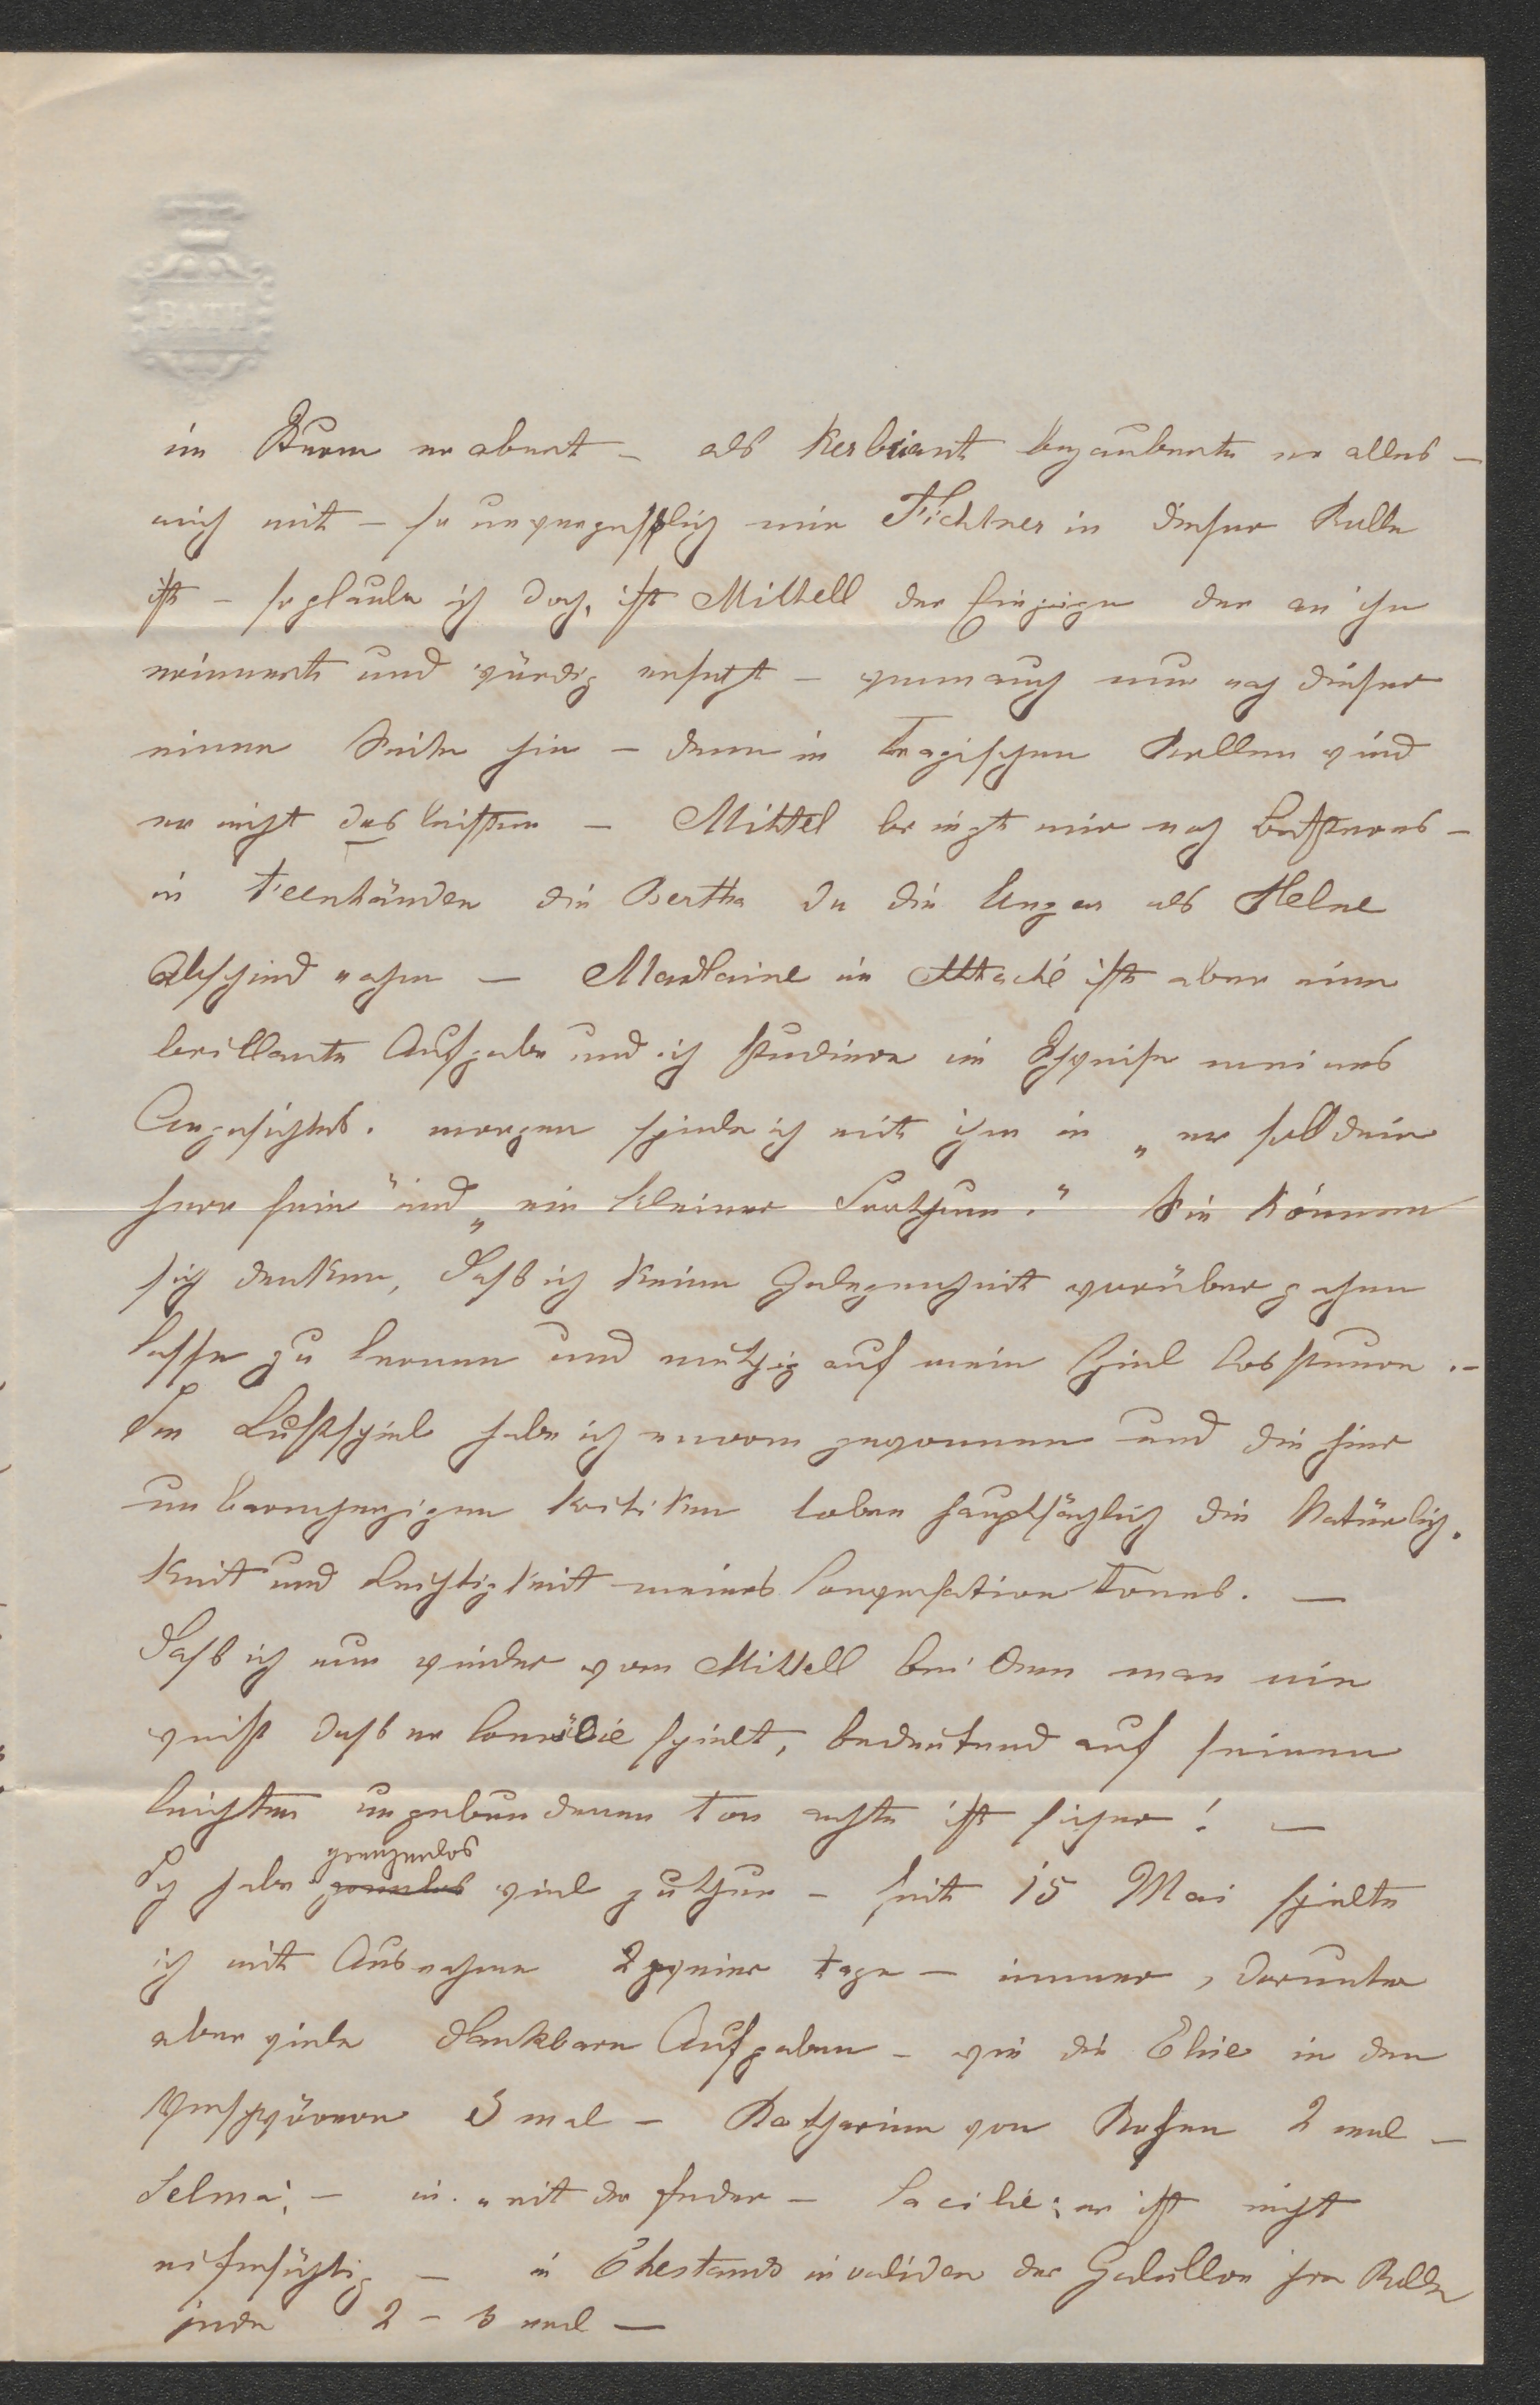 BATH
im Sturm erobert – als Kerbriant bezauberte er alles –
mich mit – so unvergesslich mir Fichtner in dieser Rolle
ist – so glaube ich doch, ist Mittell der Einzige der an ihn
erinnert und würdig ersetzt – wenn auch nur nach dieser
einen Seite hin – denn in tragischen Rollen wird
er nicht das leisten – Mittel bringt mir noch Besseres –
in Feenhänden die Bertha da die Unger als Helne
Abschied nahm – Madlaine im Attaché ist aber eine
brillante Aufgabe und ich studiere im Schweiße meines
Angesichtes. morgen spiele ich mit ihm in „er soll dein
Herr sein" und „ein kleiner Irrthum." Sie können
sich denken, daß ich keine Gelegenheit vorüber gehen
lasse zu lernen und muthig auf mein Ziel lossteuere .–
Im Lustspiel habe ich enorm gewonnen und die hier
unbarmherzigen Kritiken loben hauptsächlich die Natürlich-
keit und Leichtigkeit meines Conversationstones. —
Daß ich nun wieder vom Mittell bei dem man nie
weiß daß er Comödie spielt, bedeutend auf seinen
leichten ungebundenen Ton achte ist sicher! —
grenzenlos
Ich habe viel zu thun – seit 15 Mai spielte
ich mit Ausnahme zweier Tage – immer, darunter
aber viele dankbare Aufgaben – wie die Elise in den
Verschwörern 3 mal – Katharina von Rosen 2 mal –
Selma, – in „mit der Feder – Cacilie; er ist nicht
eifersüchtig – in Ehestands invaliden der Gabillon ihre Rolle
jede 2 – 3 mal —